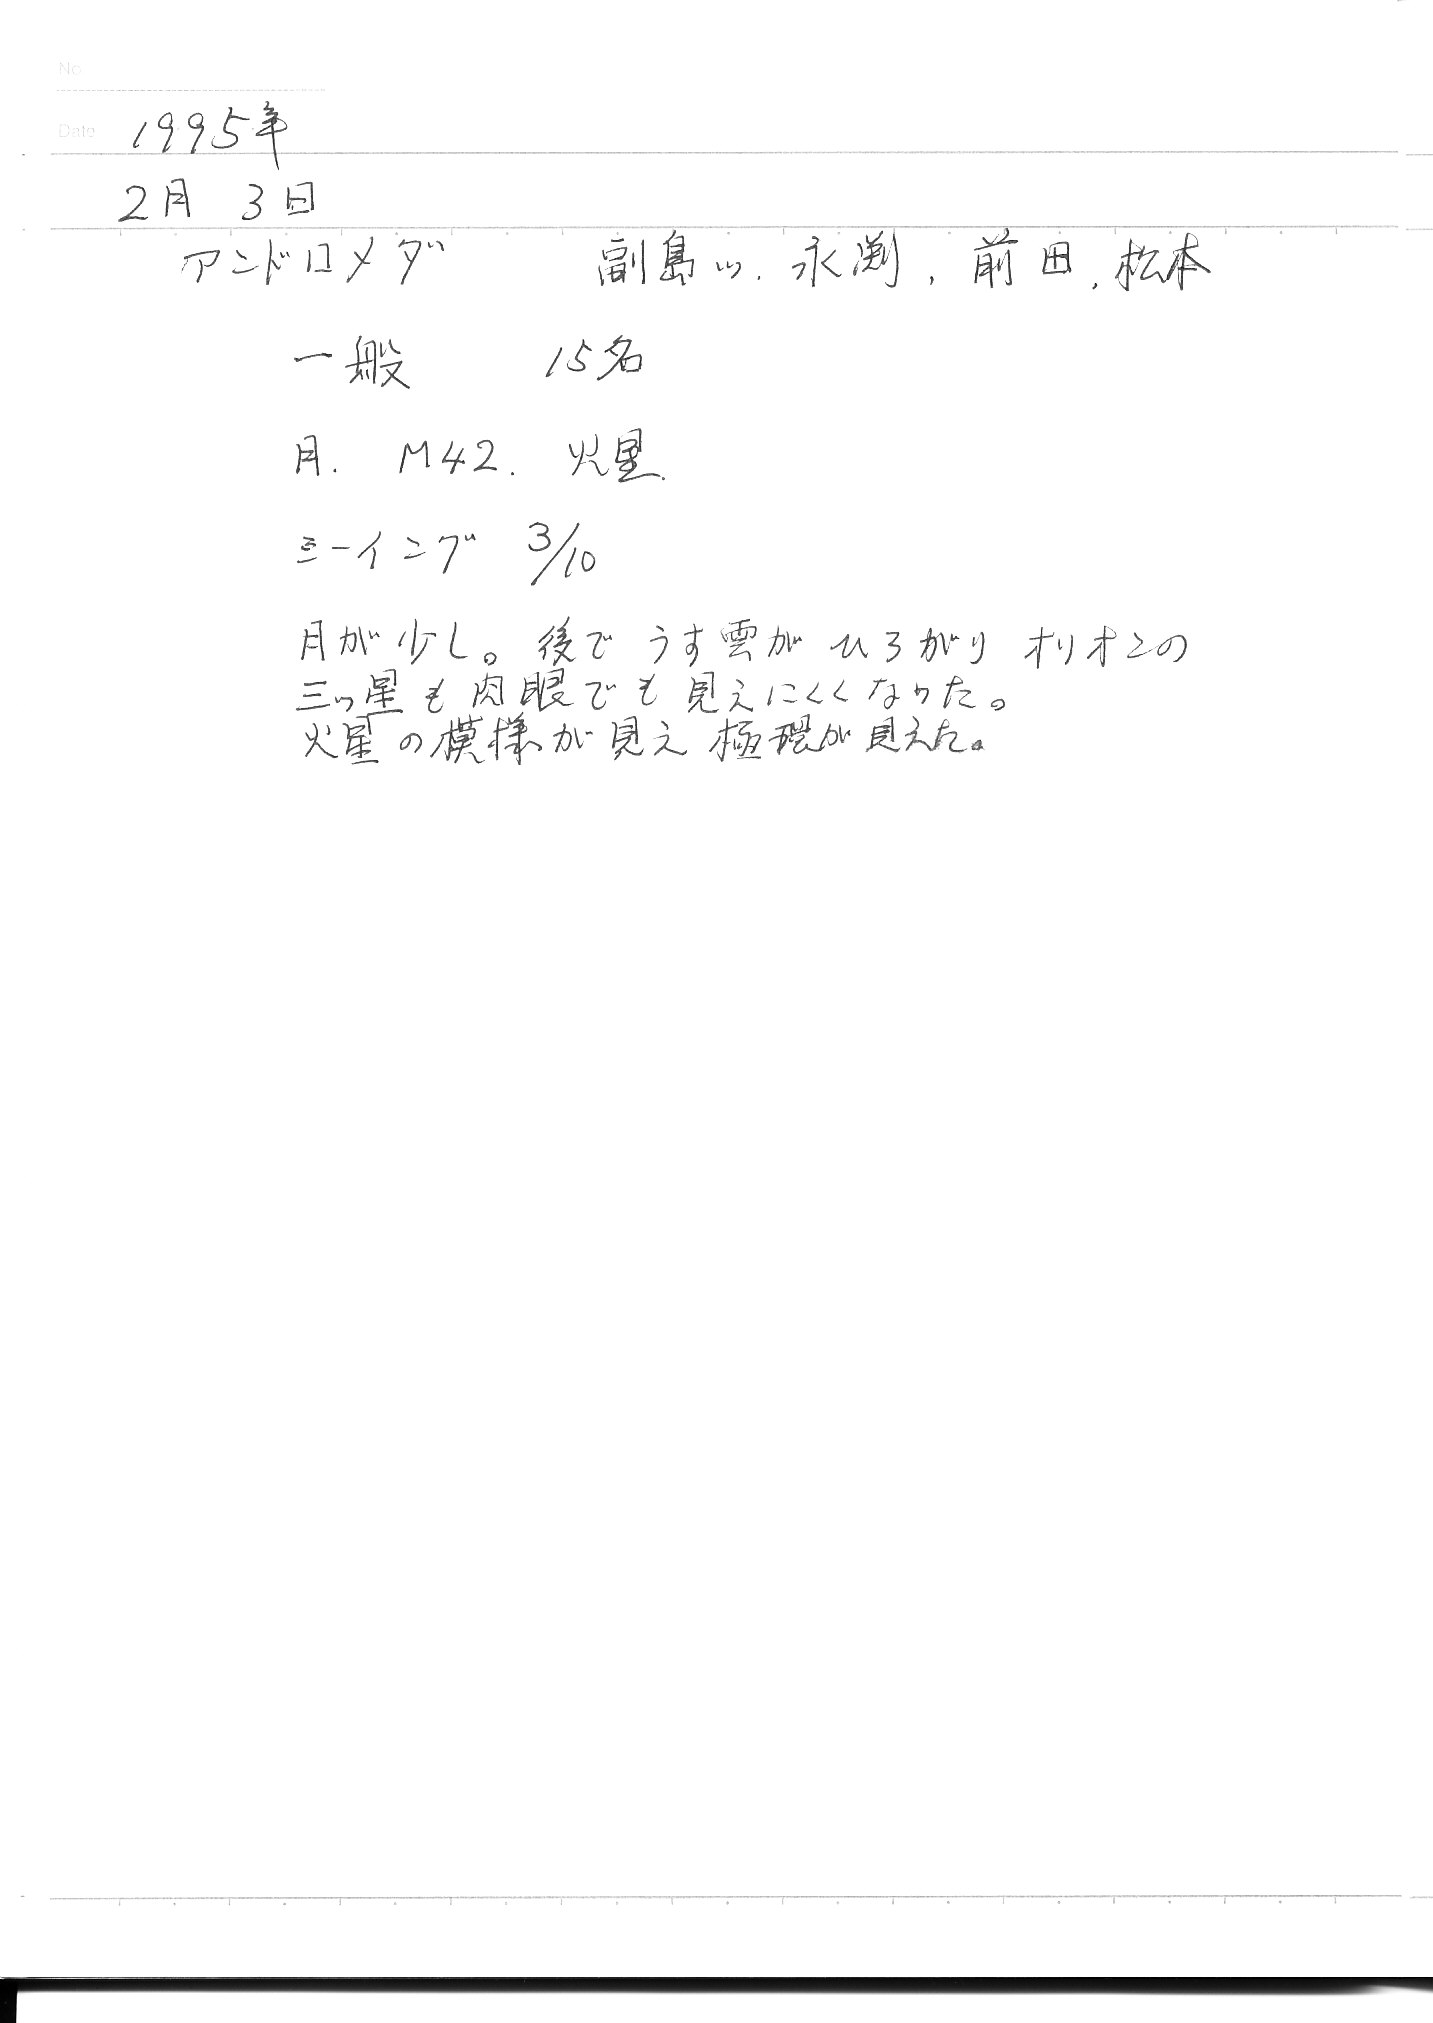 No
Date 1995年
2月 3日
アンドロメダ 副島ッ. 永渕, 前田, 松本
一般 15名
月. M42. 火星.
ミーイング 3/10
月が少し。後で うす雲が ひろがり オリオンの
三ッ星も肉眼でも見えにくくなった。
火星の模様が見え 極環が見えた。